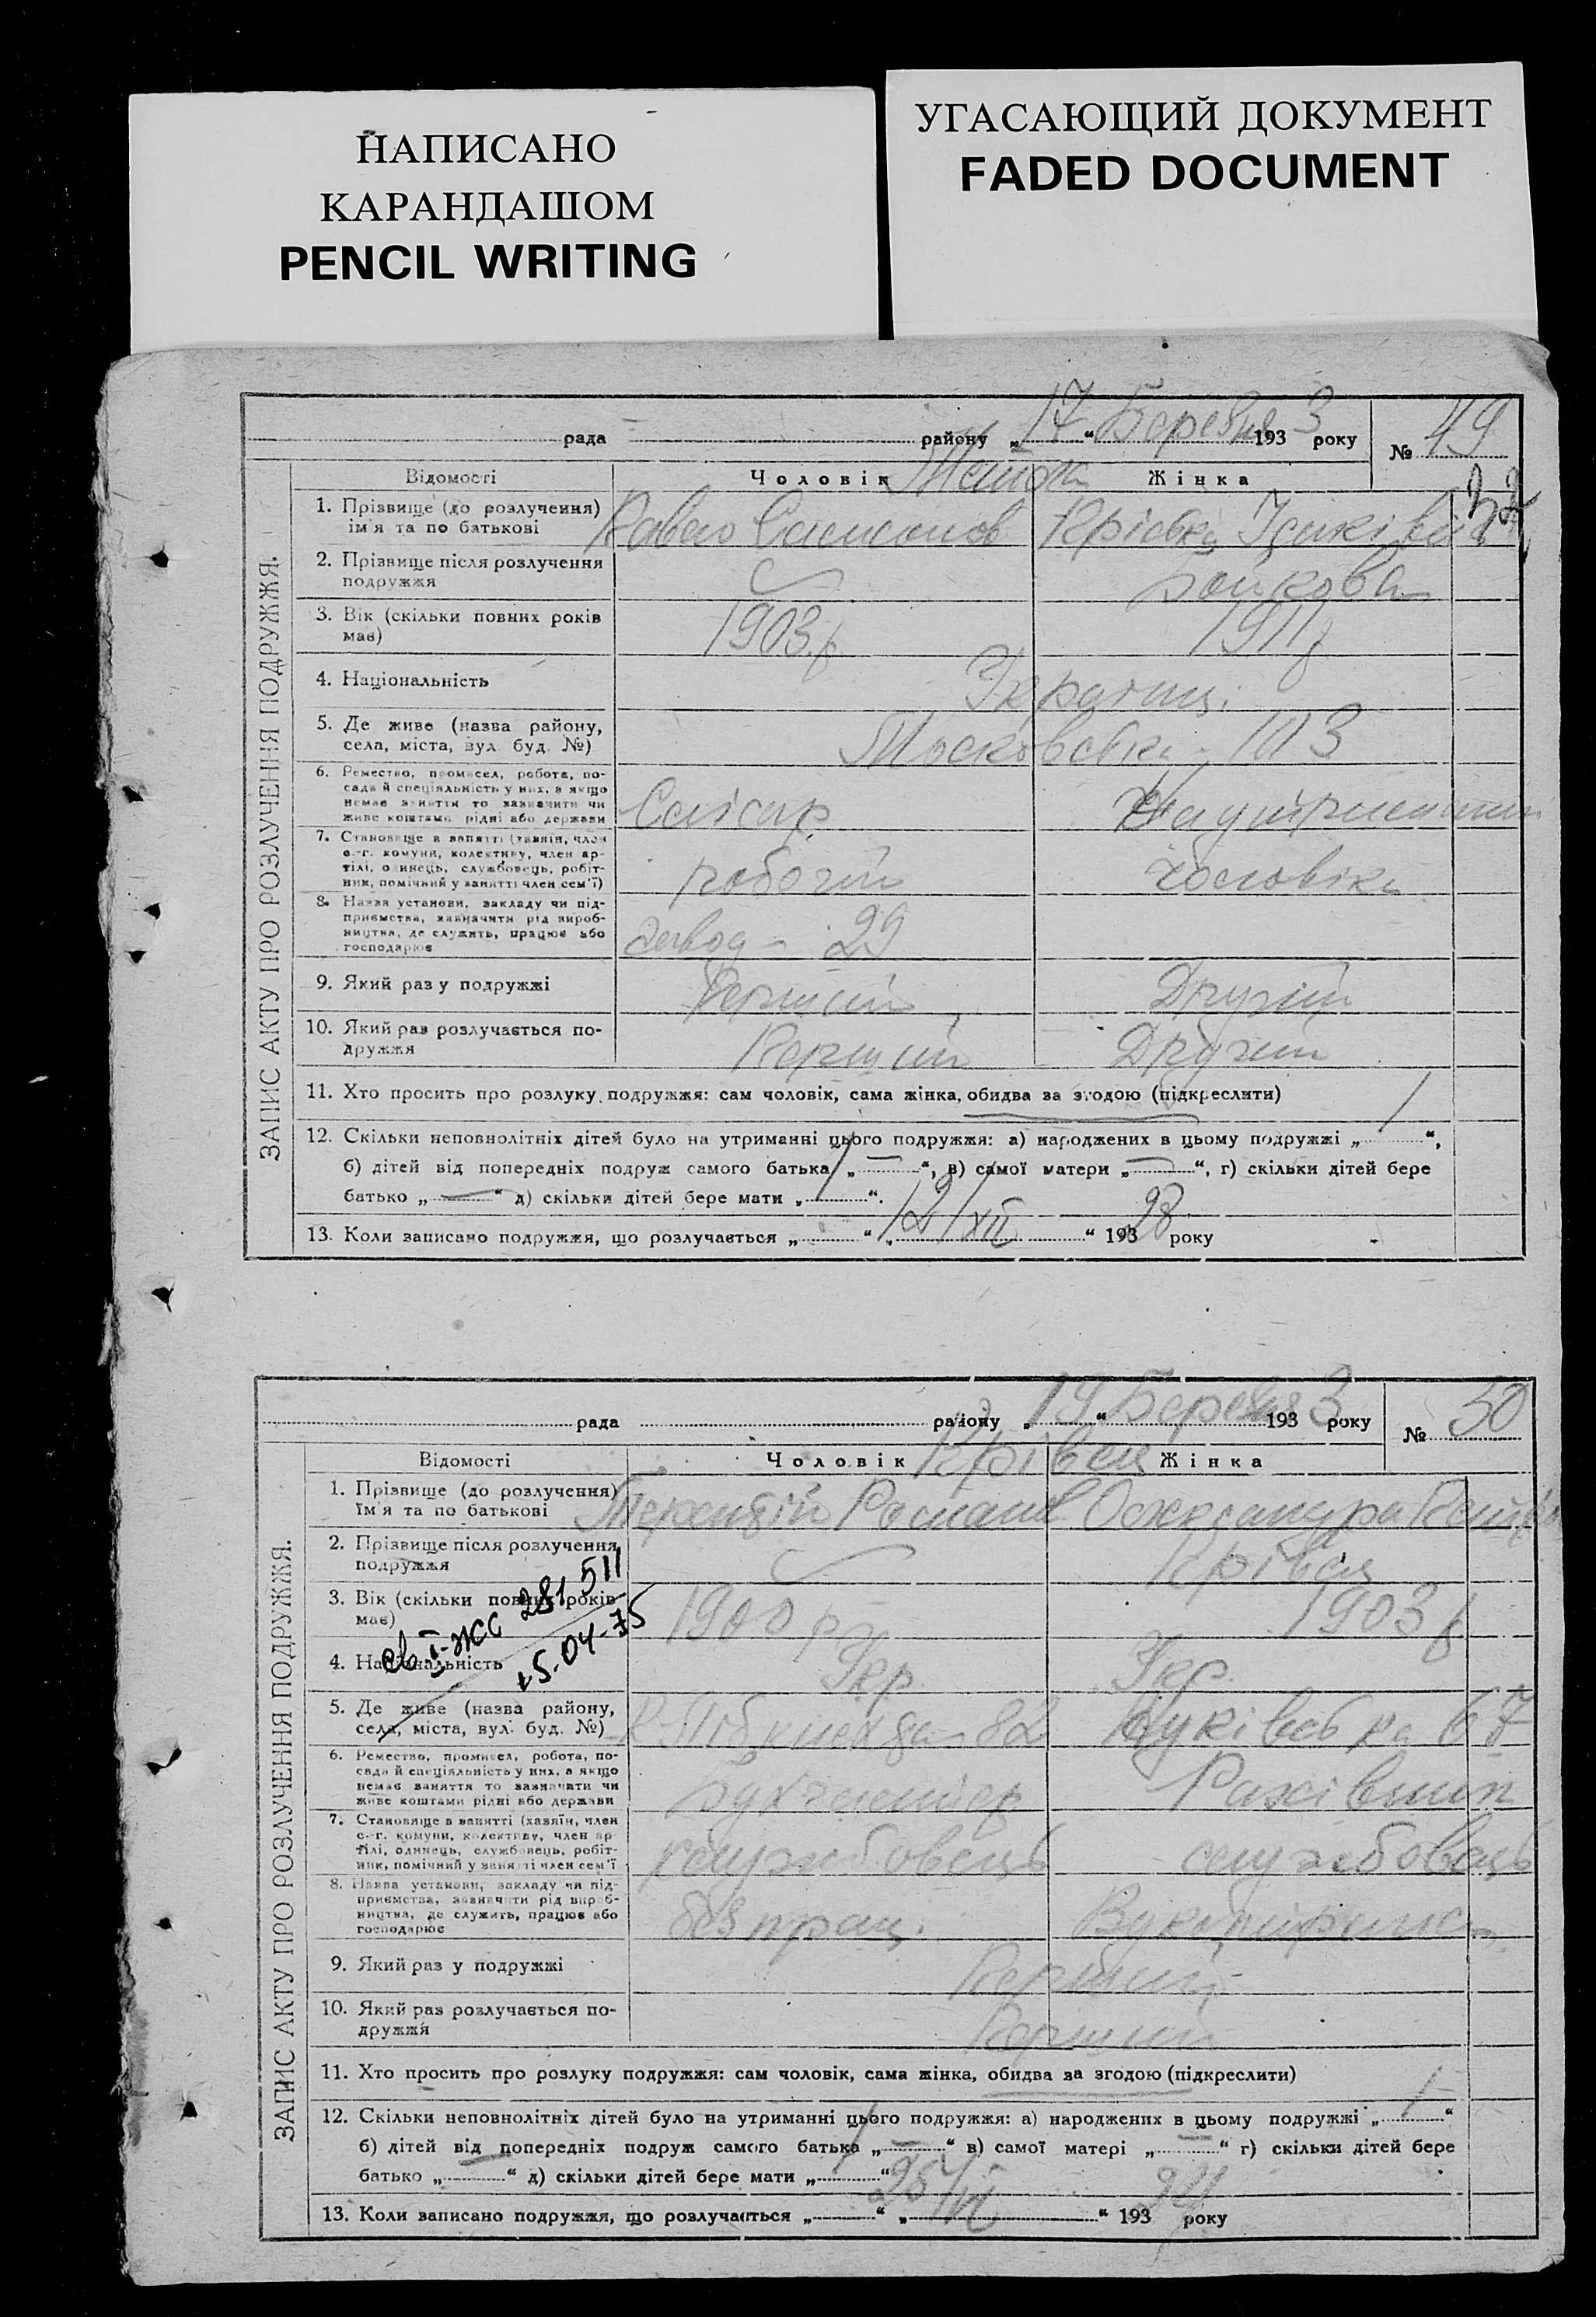 НАПИСАНО
КАРАНДАШОМ
PENCIL WRITING
УГАСАЮЩИЙ ДОКУМЕНТ
FADED DOCUMENT
ЗАПИС АКТУ ПРО РОЗЛУЧЕННЯ ПОДРУЖЖЯ.
рада району „17“ Березня 1933 року № 49
Відомості Чоловік Жінка
32
1. Прізвище (до розлучення)
ім'я та по батькові
Павло
2. Прізвище після розлучення
подружжя
Бойкова
3. Вік (скільки повних років
має)
1903 р 1911 р
4. Національність
5. Де живе (назва району,
села, міста, вул. буд. №)
Московська 113
6. Ремество, промисел, робота, по-
сада й спеціяльність у них, а якщо
немає заняття то зазначити чи
живе коштами рідні або держави
Слісар На утриманні
7. Становище в занятті (хазяїн, член
с.-г. комуни, колективу, член ар-
тілі, одинець, службовець, робіт-
ник, помічний у занятті член сем'ї)
робочий чоловіка
8. Назва установи, закладу чи під-
приємства, зазначити рід вироб-
ництва, де служить, працює або
господарює
завод - 29
9. Який раз у подружжі
Перший Другий
10. Який раз розлучається по-
дружжя
Перший Другий
11. Хто просить про розлуку подружжя: сам чоловік, сама жінка, обидва за згодою (підкреслити)
12. Скільки неповнолітніх дітей було на утриманні цього подружжя: а) народжених в цьому подружжі „1“,
б) дітей від попередніх подруж самого батька „—“, в) самої матери „—“, г) скільки дітей бере
батько „—“ д) скільки дітей бере мати „1“.
13. Коли записано подружжя, що розлучається „ “ „12/XII“ 193 28 року
ЗАПИС АКТУ ПРО РОЗЛУЧЕННЯ ПОДРУЖЖЯ.
рада району „19“ Березня 1933 року № 50
Відомості Чоловік Жінка
Крівец
1. Прізвище (до розлучення)
їм'я та по батькові
Терентій Романов Олександра
2. Прізвище після розлучення
подружжя
Крівец
3. Вік (скільки повних років
має)
1900 р 1903 р
св I-ЖС 281511
15.04-75
4. Національність
Укр. Укр.
5. Де живе (назва району,
села, міста, вул. буд. №)
К-Лібкнехда-82 67
6. Ремество, промисел, робота, по-
сада й спеціяльність у них, а якщо
немає заняття то зазначати чи
живе коштами рідні або держави
Бухгалтер Рахівник
7. Становище в занятті (хазяїн, член
с.-г. комуни, колективу, член ар-
тілі, одинець, службовець, робіт-
ник, помічний у занятті член сем'ї
службовець службовець
8. Назва установи, закладу чи під-
приємства, зазначити рід вироб-
ництва, де служить, працює або
господарює
без прац.
9. Який раз у подружжі
Перший
10. Який раз розлучається по-
дружжя
Перший
11. Хто просить про розлуку подружжя: сам чоловік, сама жінка, обидва за згодою (підкреслити)
12. Скільки неповнолітніх дітей було на утриманні цього подружжя: а) народжених в цьому подружжі „1“
б) дітей від попередніх подруж самого батька „—“ в) самої матері „—“ г) скільки дітей бере
батько „ “ д) скільки дітей бере мати „1“
13. Коли записано подружжя, що розлучається „ “ „ “ 193 року